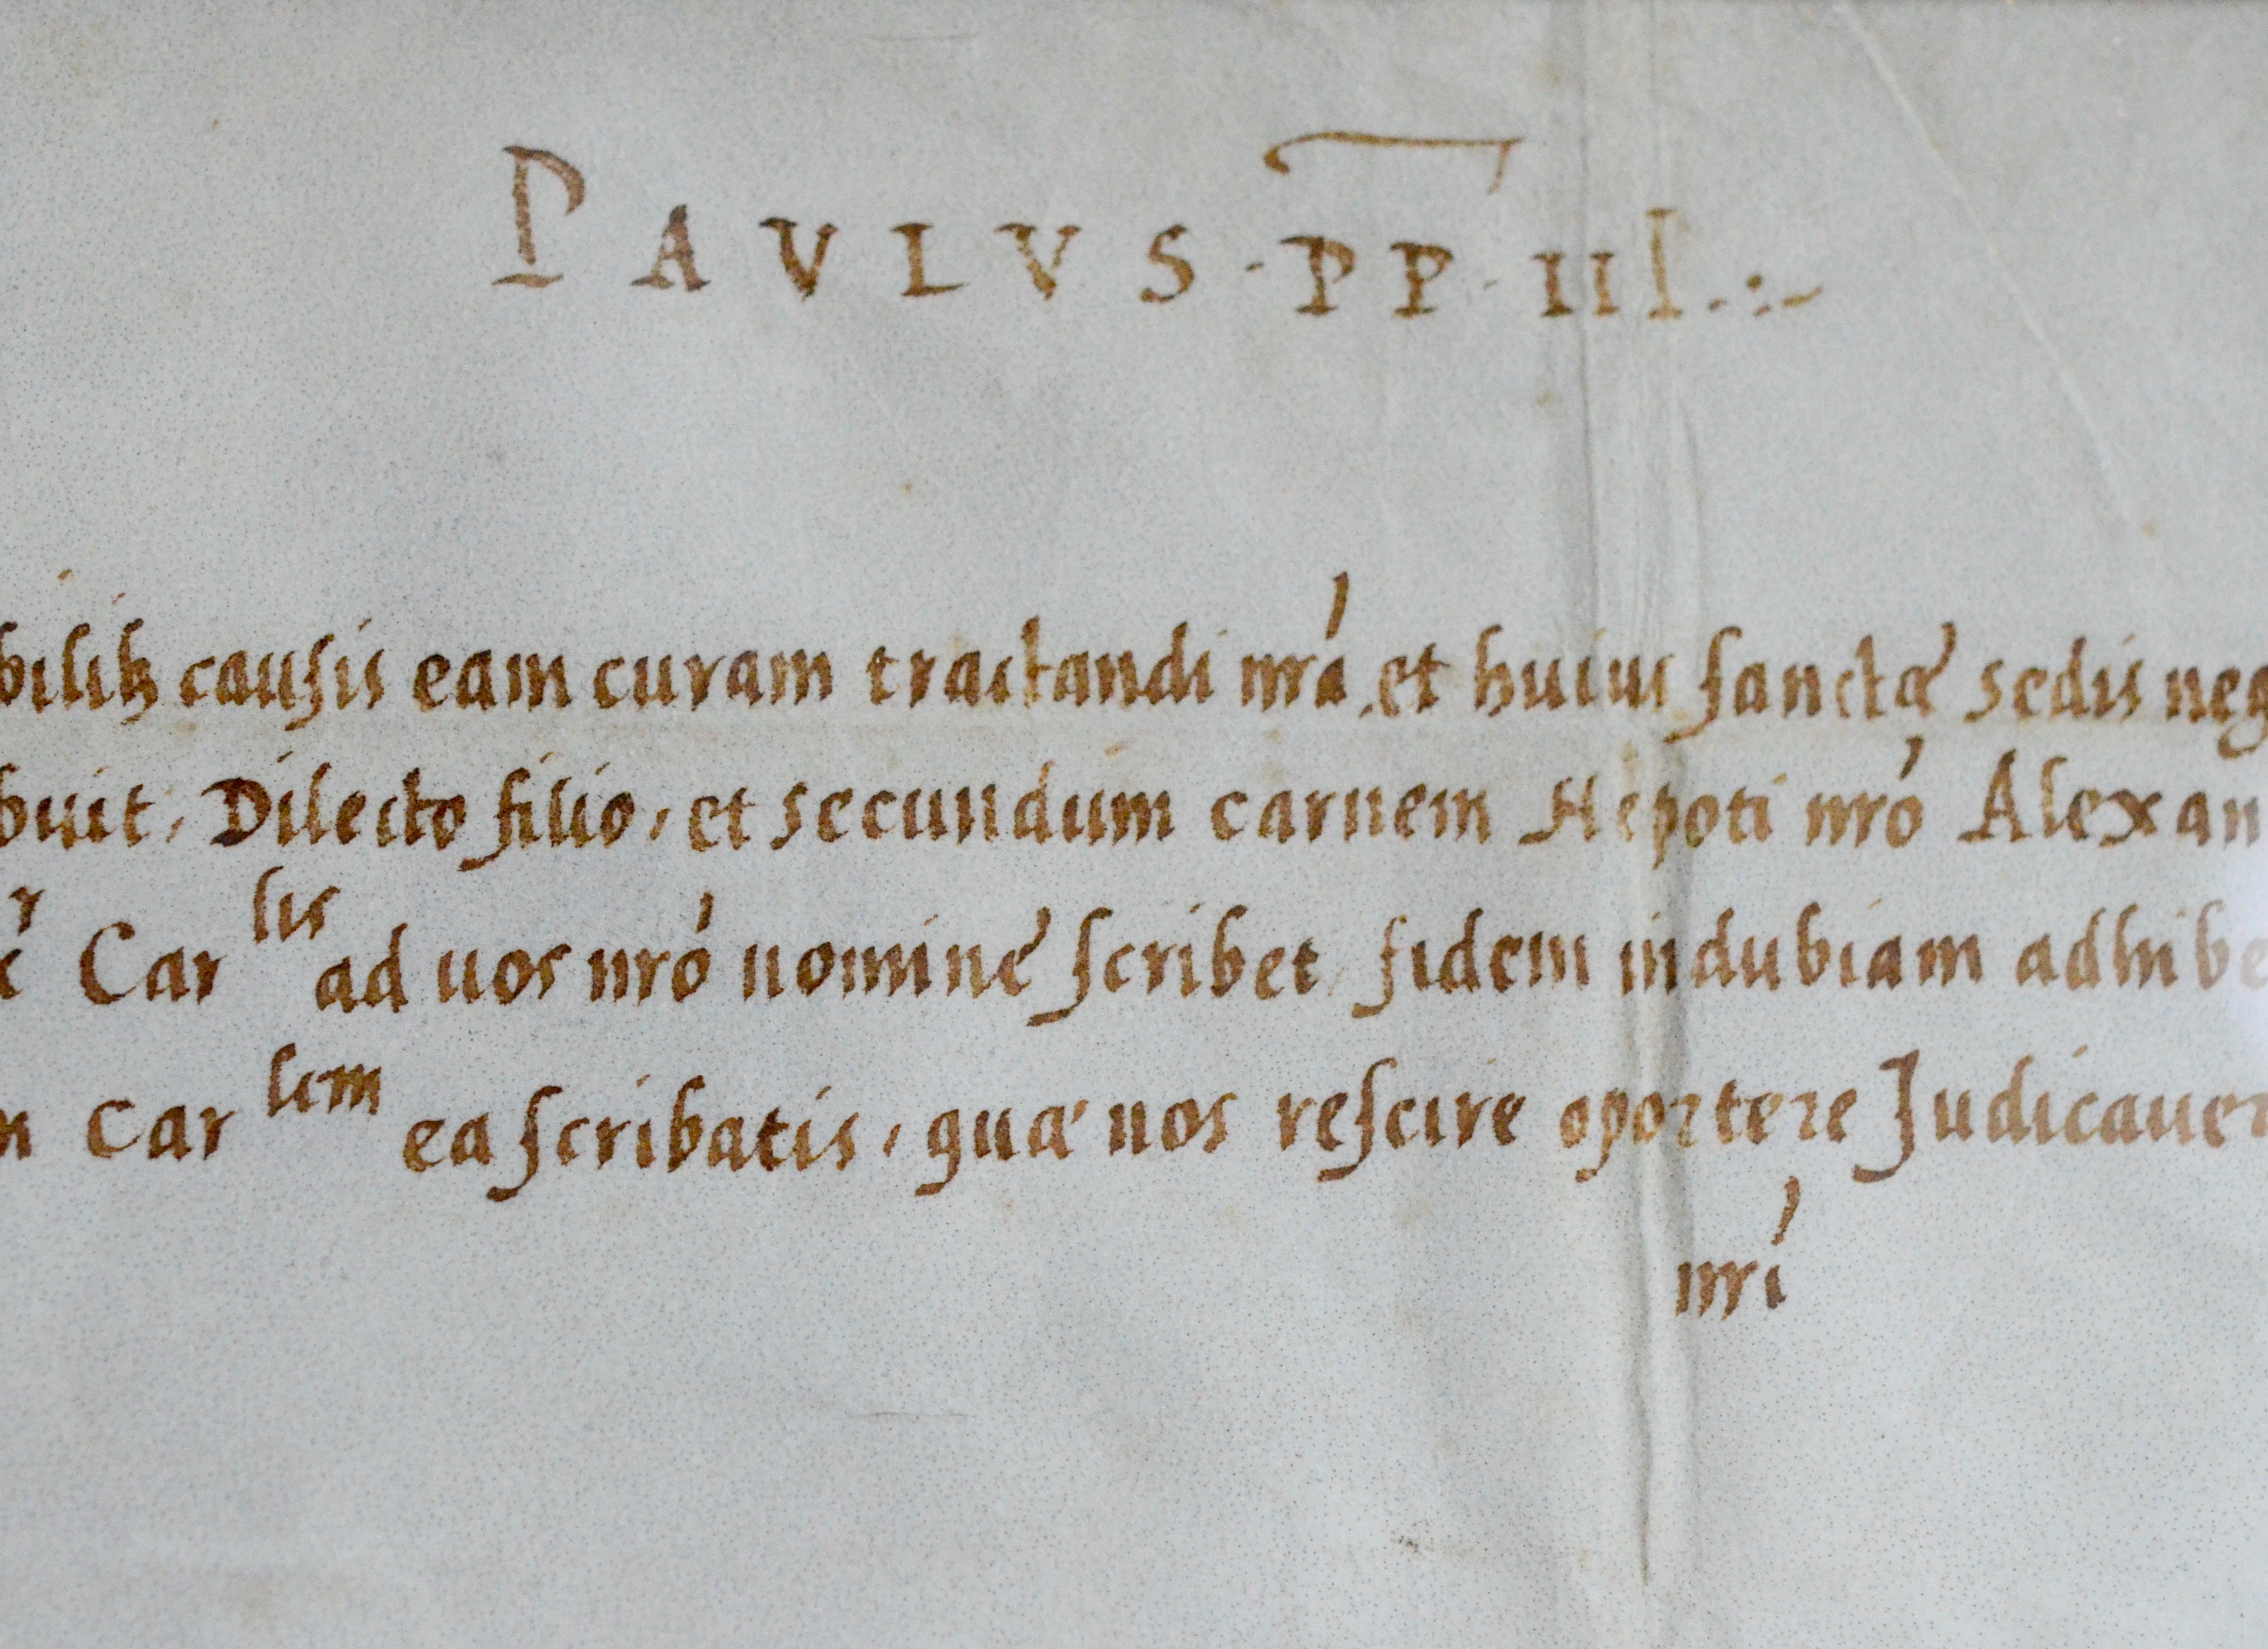 PAVLVS · PP · III .·.~
bilibꝫ causis eam curam tractandi nrá, et huius sanctæ sedis neg
buit, Dilecto filio, et secundum carnem Nepoti nró Alexan
Car^lis ad uos nró nomine scribet, fidem indubiam adhibe
Car^lem ea scribatis, quæ nos rescire oportere Judicauer
nrí